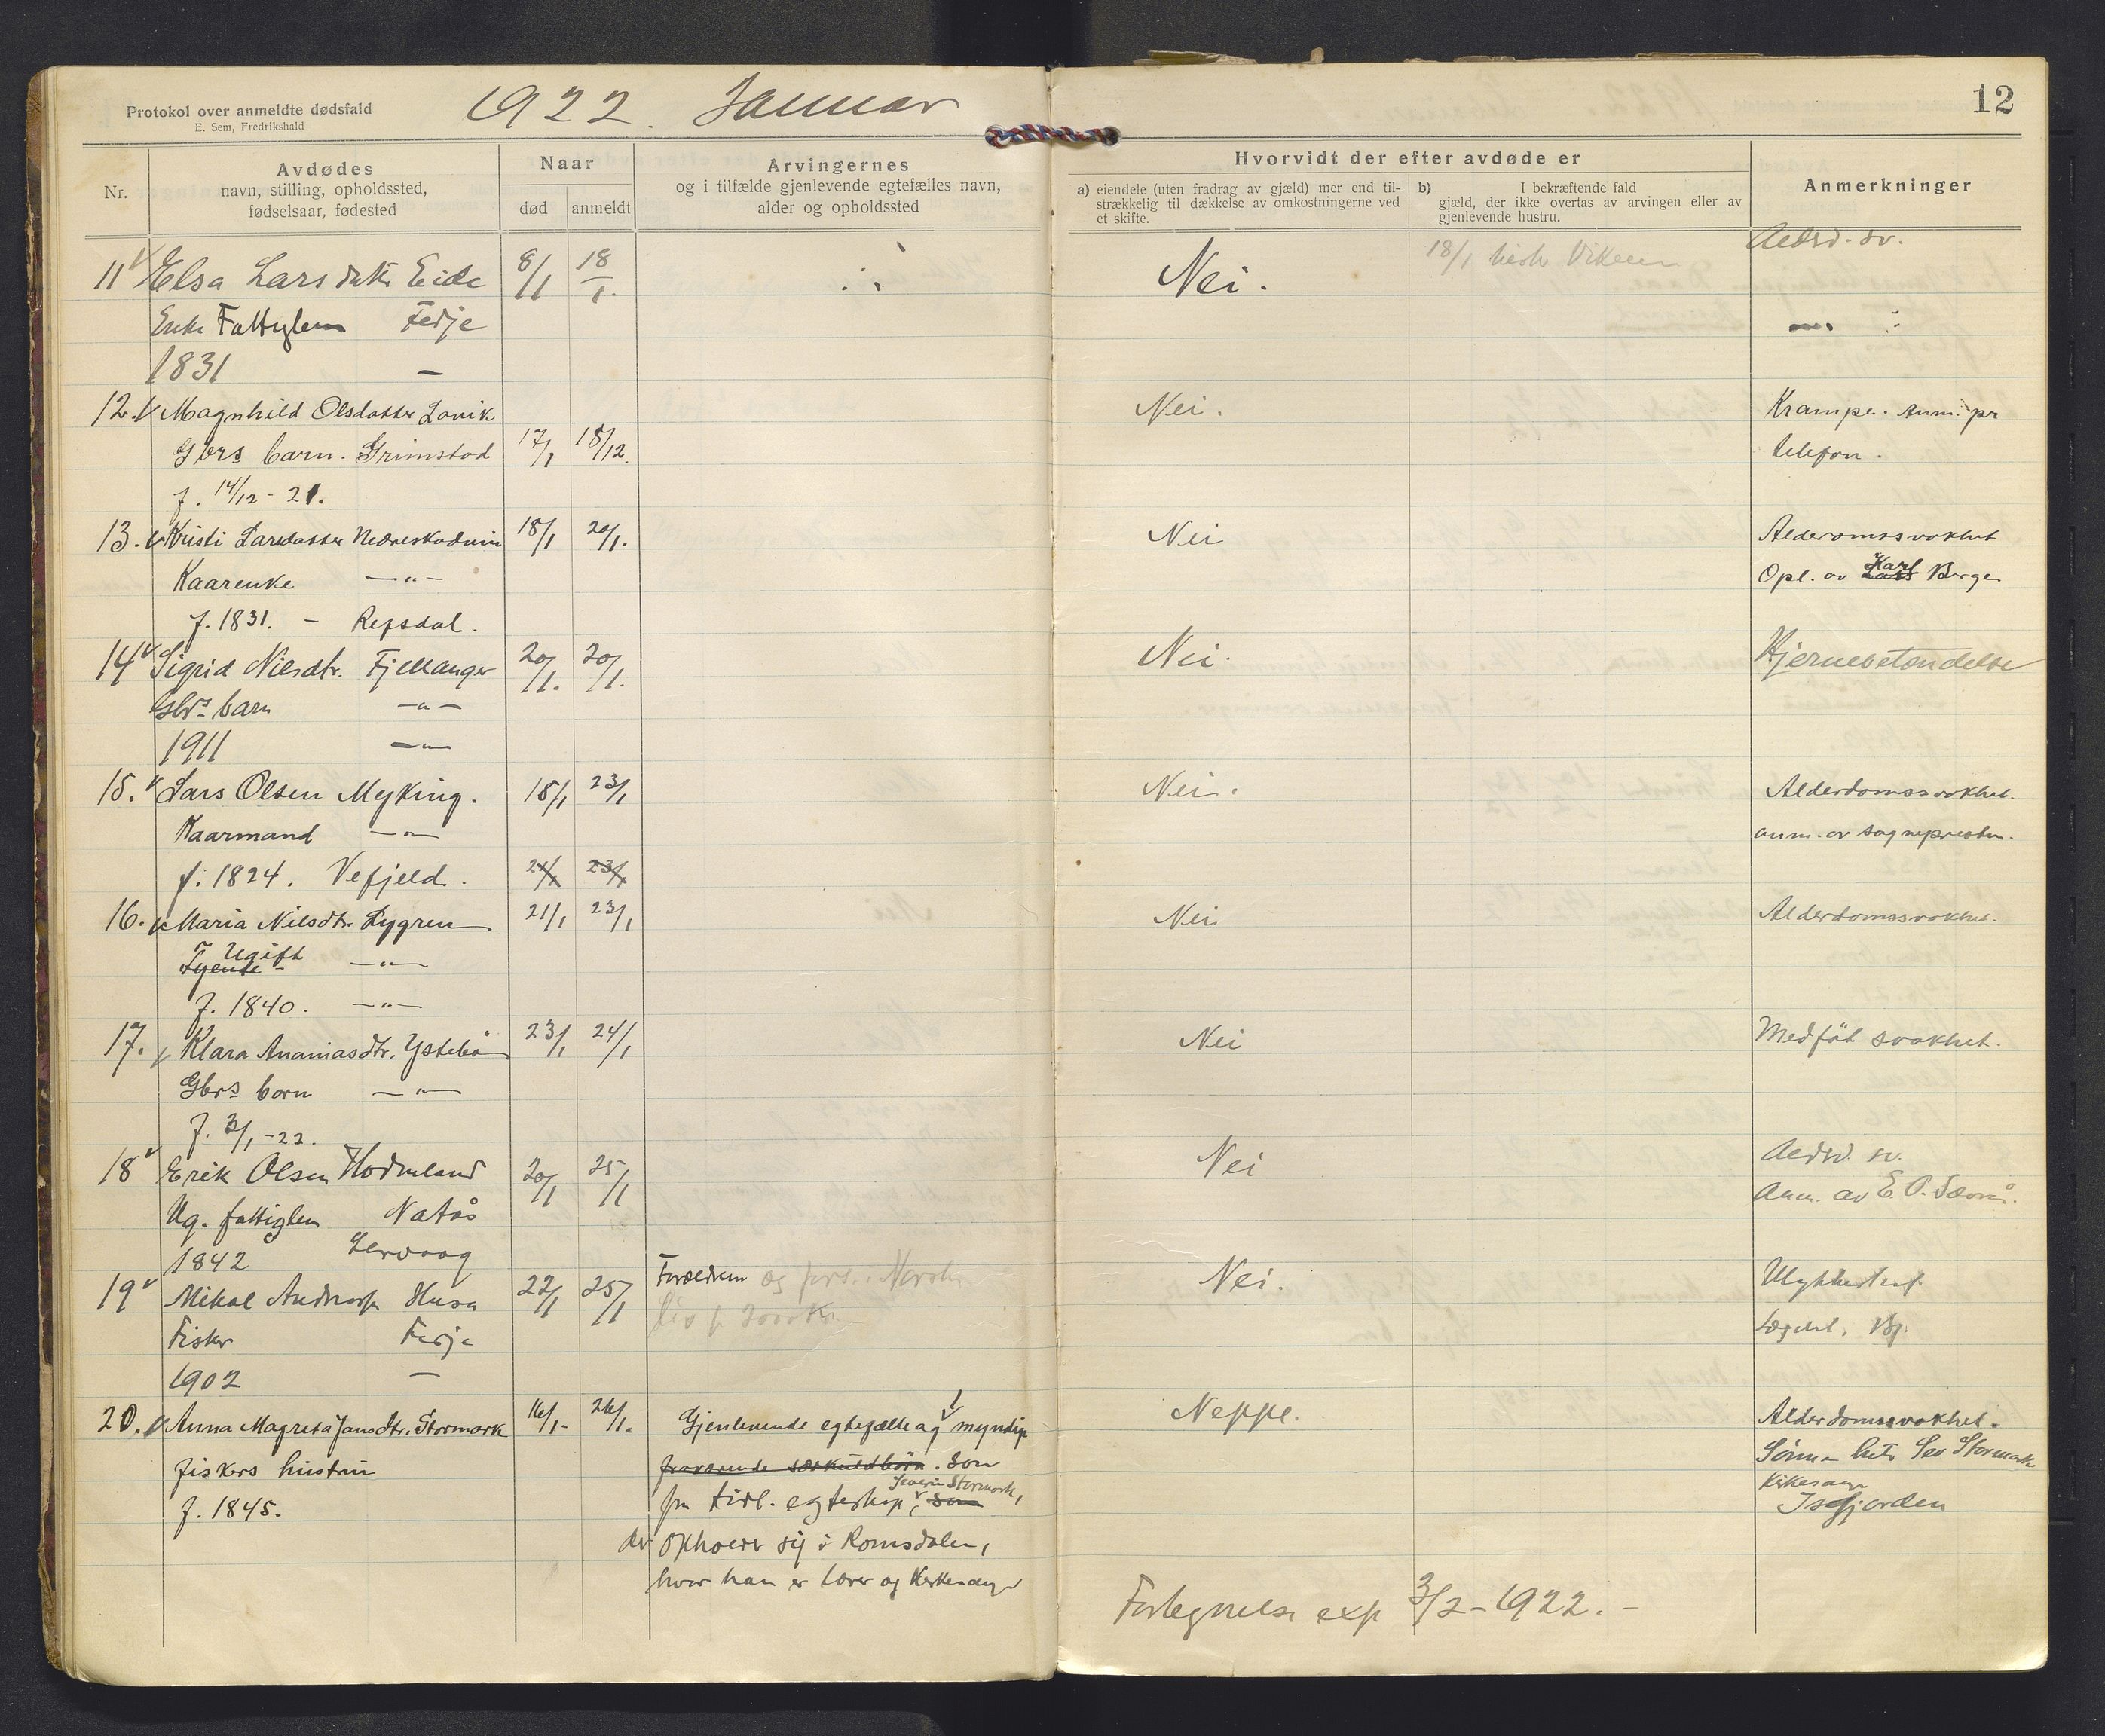 Protokol over anmeldte dødsfald
E. Sem, Fredrikshald
1922. Januar
12
Nr.
Avdødes
navn, stilling, opholdssted,
fødselsaar, fødested
Naar
død
anmeldt
Arvingernes
og i tilfælde gjenlevende egtefælles navn,
alder og opholdssted
Hvorvidt der efter avdøde er
a) eiendele (uten fradrag av gjæld) mer end til-
strækkelig til dækkelse av omkostningerne ved
et skifte.
b) I bekræftende fald
gjæld, der ikke overtas av arvingen eller av
gjenlevende hustru.
Anmerkninger
11 Elsa Larsdatr Eide 8/1 18/1. Nei. 18/1 Aldrd. sv.
Enke Fattiglem Fedje
1831 —
12. Magnhild Olsdatter Lavik Nei. Krampe. Anm. pr
Gbrs barn. Grimstad 17/1 18/12. telefon.
f. 14/12 - 21.
13. Kristi Larsdatter Nedreskodvin 18/1 20/1. Nei Alderomssvakhet
Kaarenke —"— Opl. av Karl Berge
f. 1831. — Repsdal.
14 Sigrid Nilsdtr. Fjellanger 20/1. 20/1. Nei. Hjernebetændelse
Gbrs barn —"—
1911 —"—
15. Lars Olsen Myking. 18/1 23/1 Nei. Alderdomssvakhet.
Kaarmand —"— anm. av sognepresten.
f. 1824. Vefjeld. 21/1 23/1
16. Maria Nilsdtr. Lygren 21/1 23/1 Nei Alderdomssvakhet.
Tyende Ugift —"—
f. 1840. —"—
17. Klara Ananiasdtr. Ystebø 23/1 24/1 Nei Medfødt svakhet.
Gbrs barn —"—
f. 3/1 - 22.
18 Erik Olsen Hodneland 20/1 25/1 Nei Aldrd. sv.
Ug. fattiglem Natås Anm. av E. O. Sævrås.
1842 Lervaag
19 Mikal Andreas Husa 22/1 25/1 Forældrene og Nei. Ulykkestilf.
Fisker Fedje
1902 —
20. Anna Magreta Jansdtr. Stormark 16/1- 26/1. Gjenlevende egtefælle og myndig Neppe. Alderdomssvakhet.
fiskers hustru fraværende særkuldbørn. Søn Sønnen Sev Stormark
f. 1845. fra tidl. egteskap, Severin Stormark, Kirkesanger
Isfjorden
der opholder sig i Romsdalen,
hvor han er lærer og Kirkesanger
Fortegnelse exp 3/2 - 1922. —